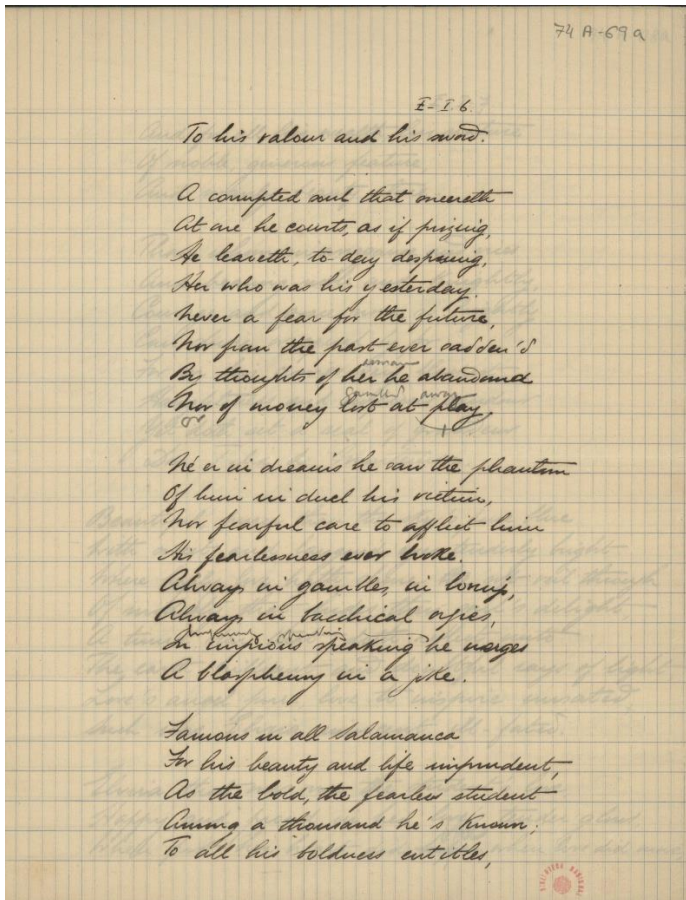 74A-69a
E-I.6.
To his valour and his sword.
A corrupted soul that sneereth
At one he courts, as if prizing,
He leaveth, to-day despising,
Her who was his yesterday.
Never a fear for the future,
Nor from the past ever sadden'd
woman
By thoughts of her he abandoned
gambled away
Nor of money lost at play,
or
Ne'er in dreams he saw the phantom
Of him in duel his victim,
Nor fearful care to afflict him
His fearlessness ever woke.
Always in gambles, in loving,
Always in bacchical orgies,
In impious speaking he merges
A blasphemy in a joke.
Famous in all Salamanca
For his beauty and life imprudent,
As the bold, the fearless student
Among a thousand he's known;
To all his boldness entitles,